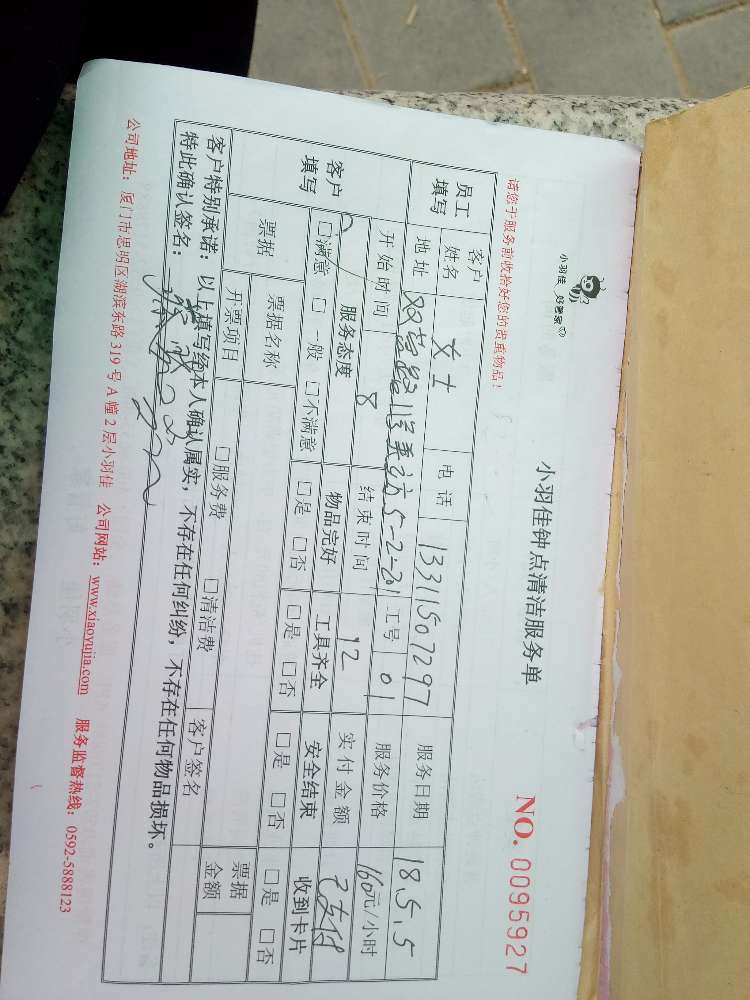 小羽佳 好管家
小羽佳钟点清洁服务单
请您于服务前收拾好您的贵重物品!
NO. 0095927
员工填写 客户姓名 女士 电话 13311507297 服务日期 18.5.5
地址 双营路11号美立方5-2-201 工号 01 服务价格 160元/小时
开始时间 8 结束时间 12 实付金额 已支付
客户填写 服务态度 物品完好 工具齐全 安全结束 收到卡片
□满意 □一般 □不满意 □是 □否 □是 □否 □是 □否 □是 □否
票据 票据名称 票据金额
开票项目 □服务费 □清洁费 客户签名
客户特别承诺:以上填写经本人确认属实,不存在任何纠纷,不存在任何物品损坏。
特此确认签名:
公司地址:厦门市思明区湖滨东路319号A幢2层小羽佳 公司网站:www.xiaoyujia.com 服务监督热线:0592-5888123